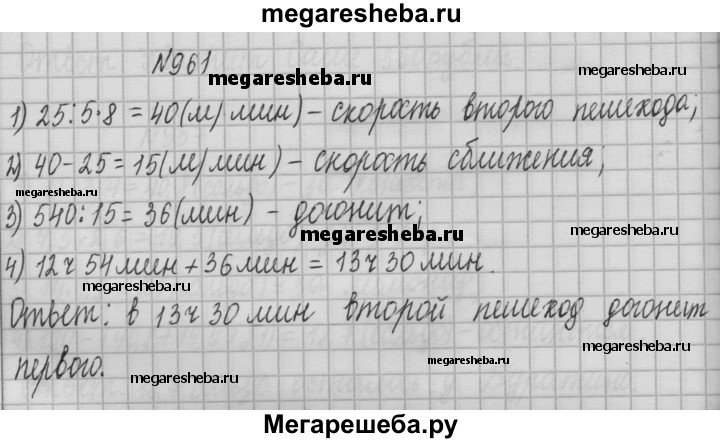 megaresheba.ru
№961
megaresheba.ru
megaresheba.ru
1) 25:5·8 = 40(м/мин) – скорость второго пешехода;
2) 40-25=15(м/мин) – скорость сближения;
megaresheba.ru
3) 540:15=36(мин) – догонит;
megaresheba.ru
4) 12ч 54мин+36мин = 13ч 30мин.
megaresheba.ru
Ответ: в 13ч 30мин второй пешеход догонит
первого.
megaresheba.ru
megaresheba.ru
megaresheba.ru
Мегарешеба.ру